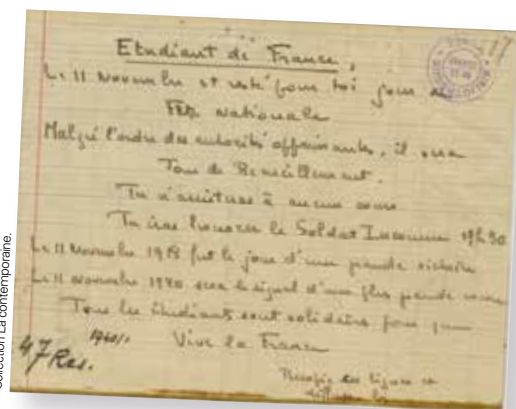 Etudiant de France,
Le 11 Novembre est resté pour toi jour de
Fête Nationale
Malgré l'ordre des autorités opprimantes, il sera
Jour de Recueillement.
Tu n'assisteras à aucun cours
Tu iras honorer le Soldat Inconnu 17h30
Le 11 Novembre 1918 fut le jour d'une grande victoire
Le 11 Novembre 1940 sera le signal d'une plus grande encore
Tous les étudiants sont solidaires pour que
Vive la France
1940/1
47 Res.
Recopie ces lignes et
diffuse les
Collection La contemporaine.